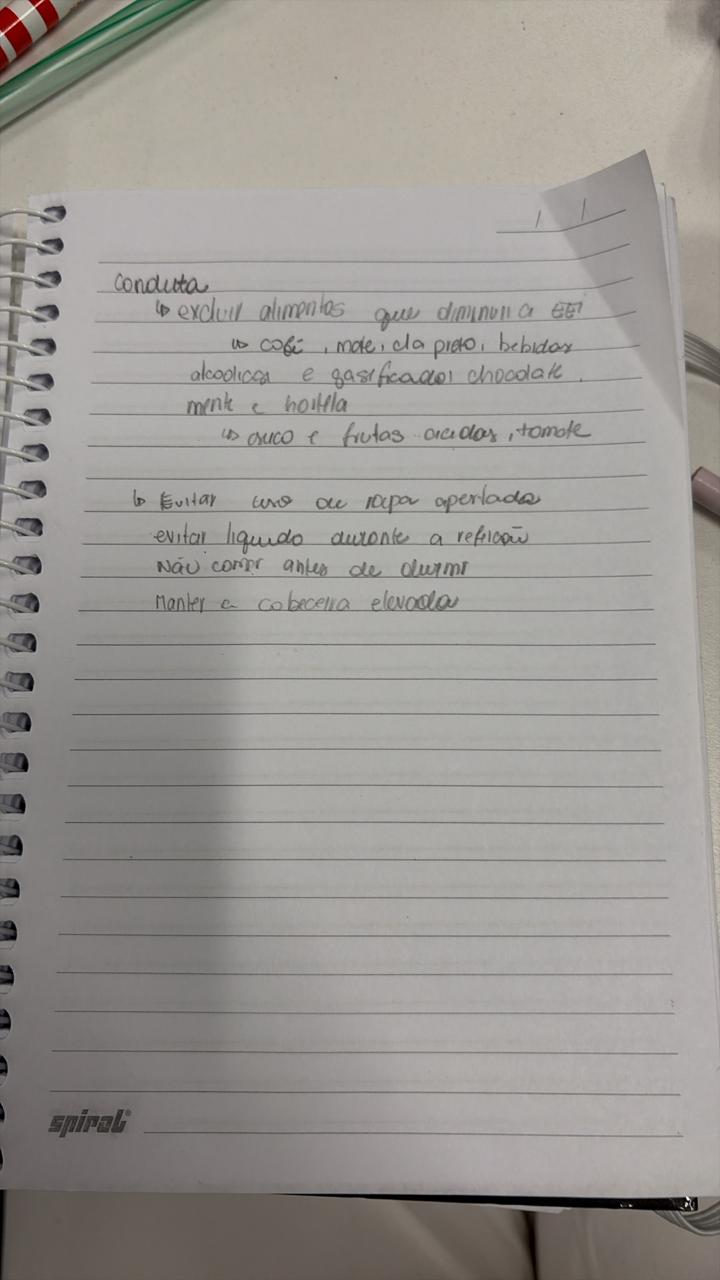 / /
conduta
↳ excluir alimentos que diminui a EEI
↳ café, mate, cha preto, bebidas
alcoolicas e gaseificados chocolate,
menta e hortela
↳ suco e frutas acidas, tomate
↳ Evitar uso de roupa apertada
evitar liquido durante a refeição
Não comer antes de dormir
Manter a cabeceira elevada
spiral®